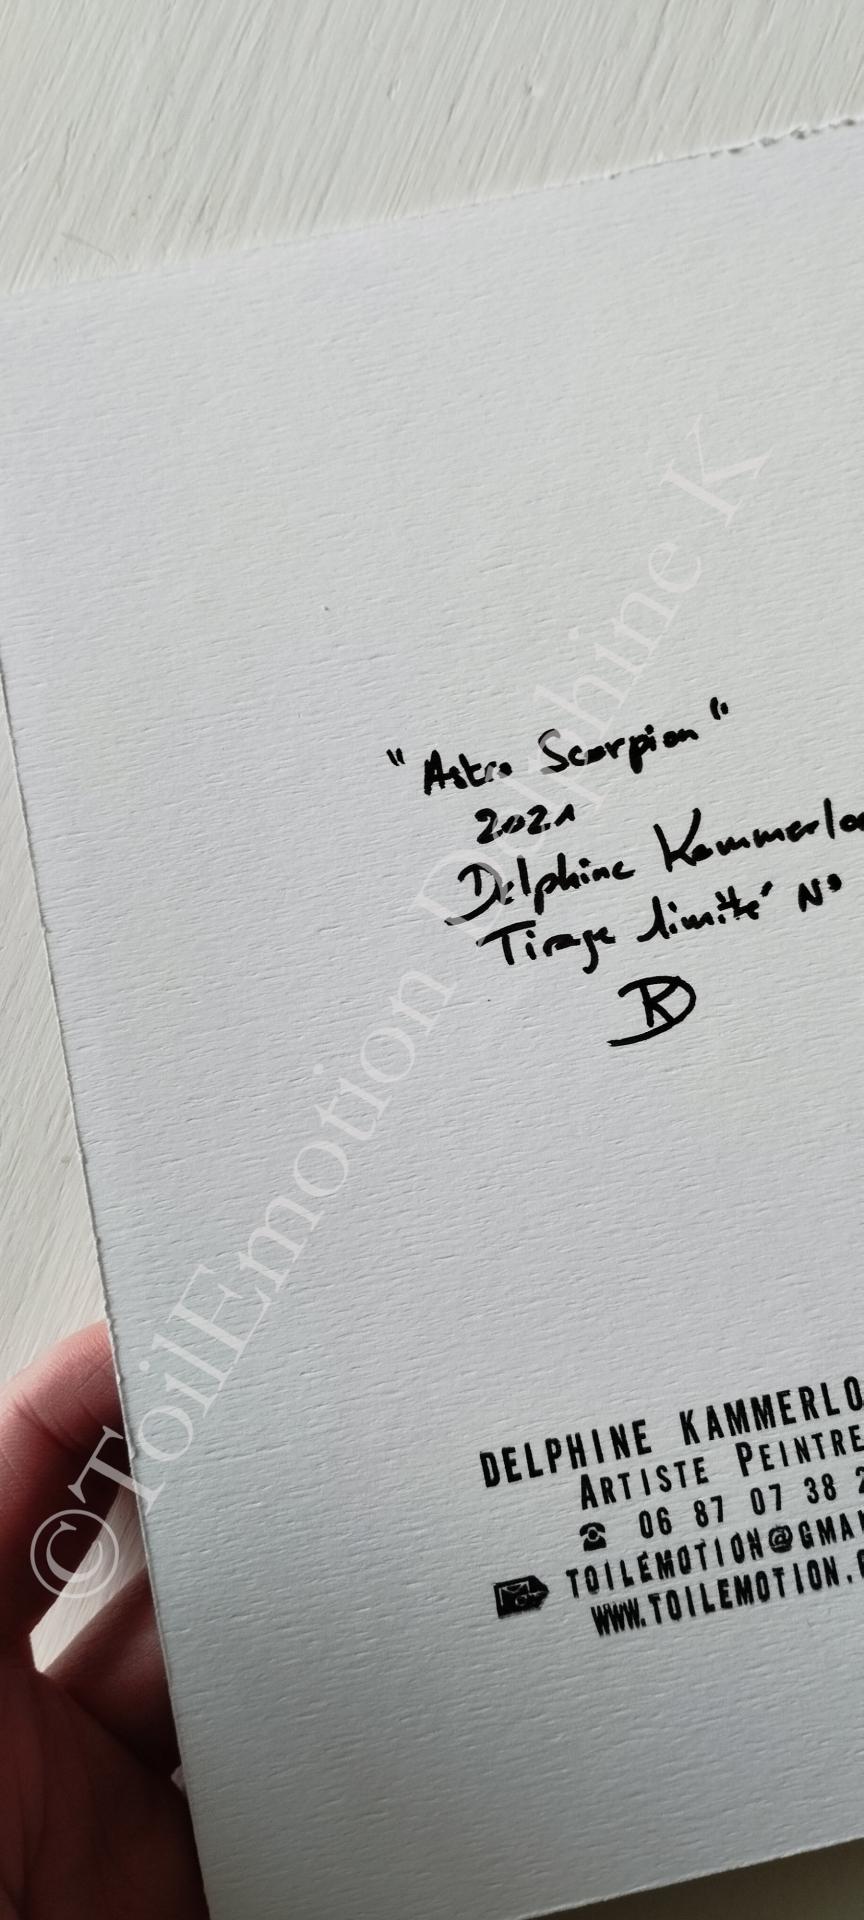 "Astro Scorpion"
2021
Delphine Kammerloc
Tirage limité N°
DK
DELPHINE KAMMERLO
ARTISTE PEINTRE
06 87 07 38 2
TOILEMOTION@GMAI
WWW.TOILEMOTION.
©ToilEmotion Delphine K